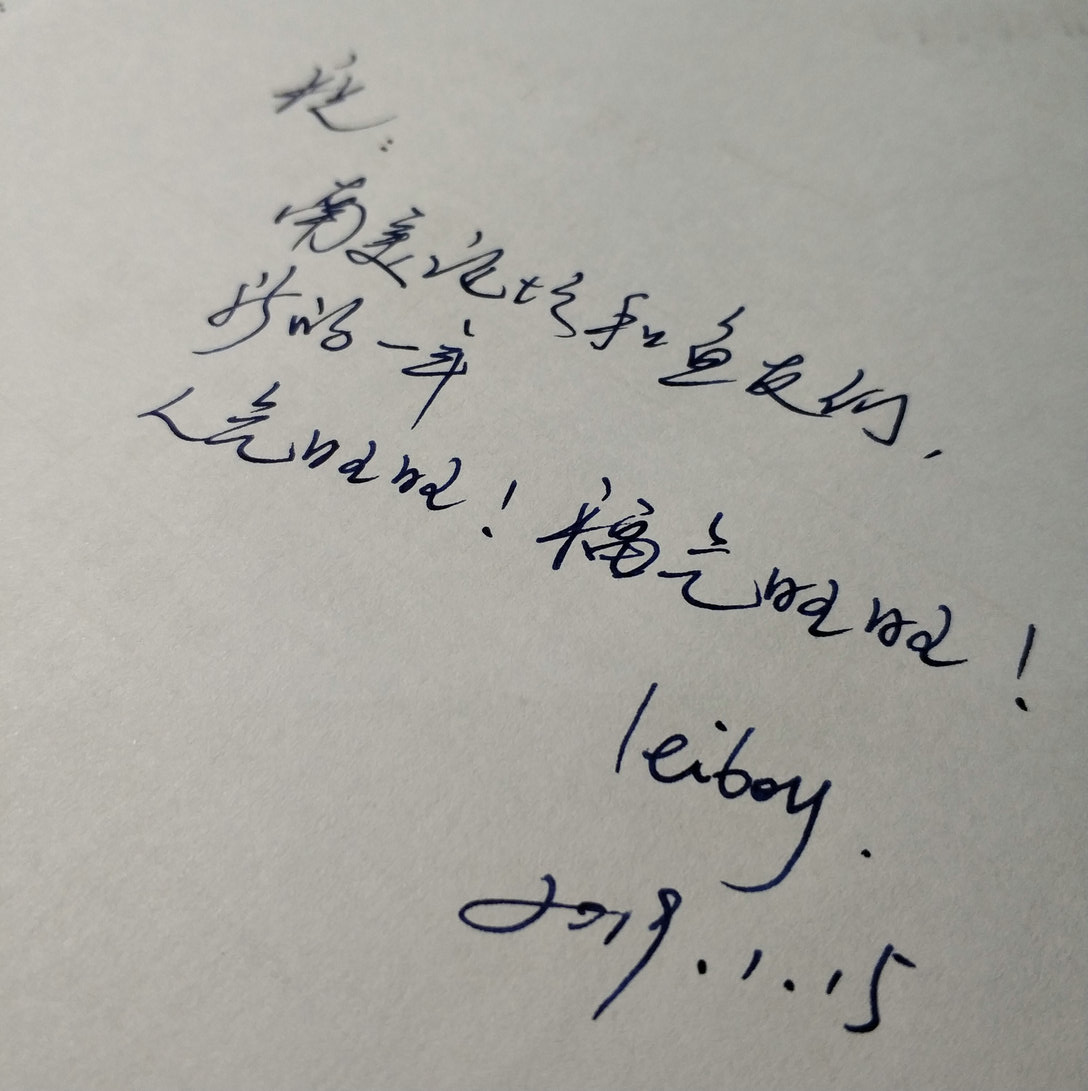 祝:
南美论坛和鱼友们,
新的一年
人气旺旺!福气旺旺!
leiboy.
2019.1.15